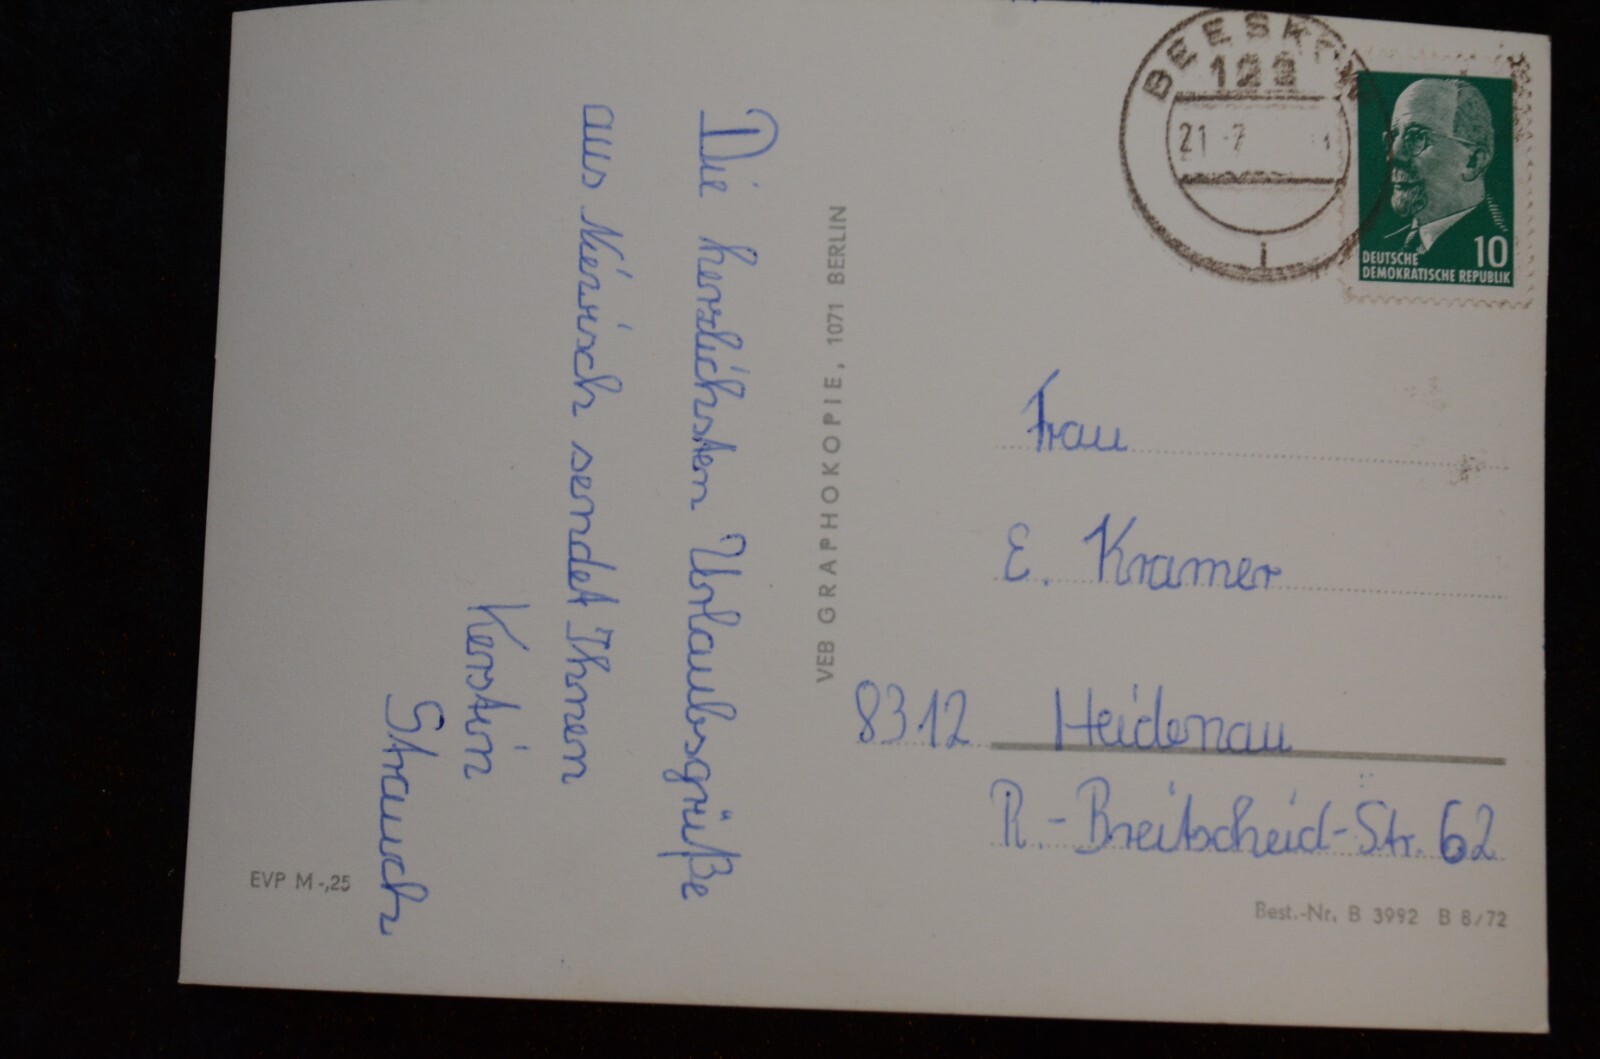 Die herzlichsten Urlaubsgrüße
aus sendet Ihnen
Kerstin
Strauch
EVP M -,25
VEB GRAPHOKOPIE, 1071 BERLIN
BEESKOW
122
21.-7
i
10
DEUTSCHE
DEMOKRATISCHE REPUBLIK
Frau
E. Kramer
8312 Heidenau
R.-Breitscheid-Str. 62
Best.-Nr. B 3992 B 8/72